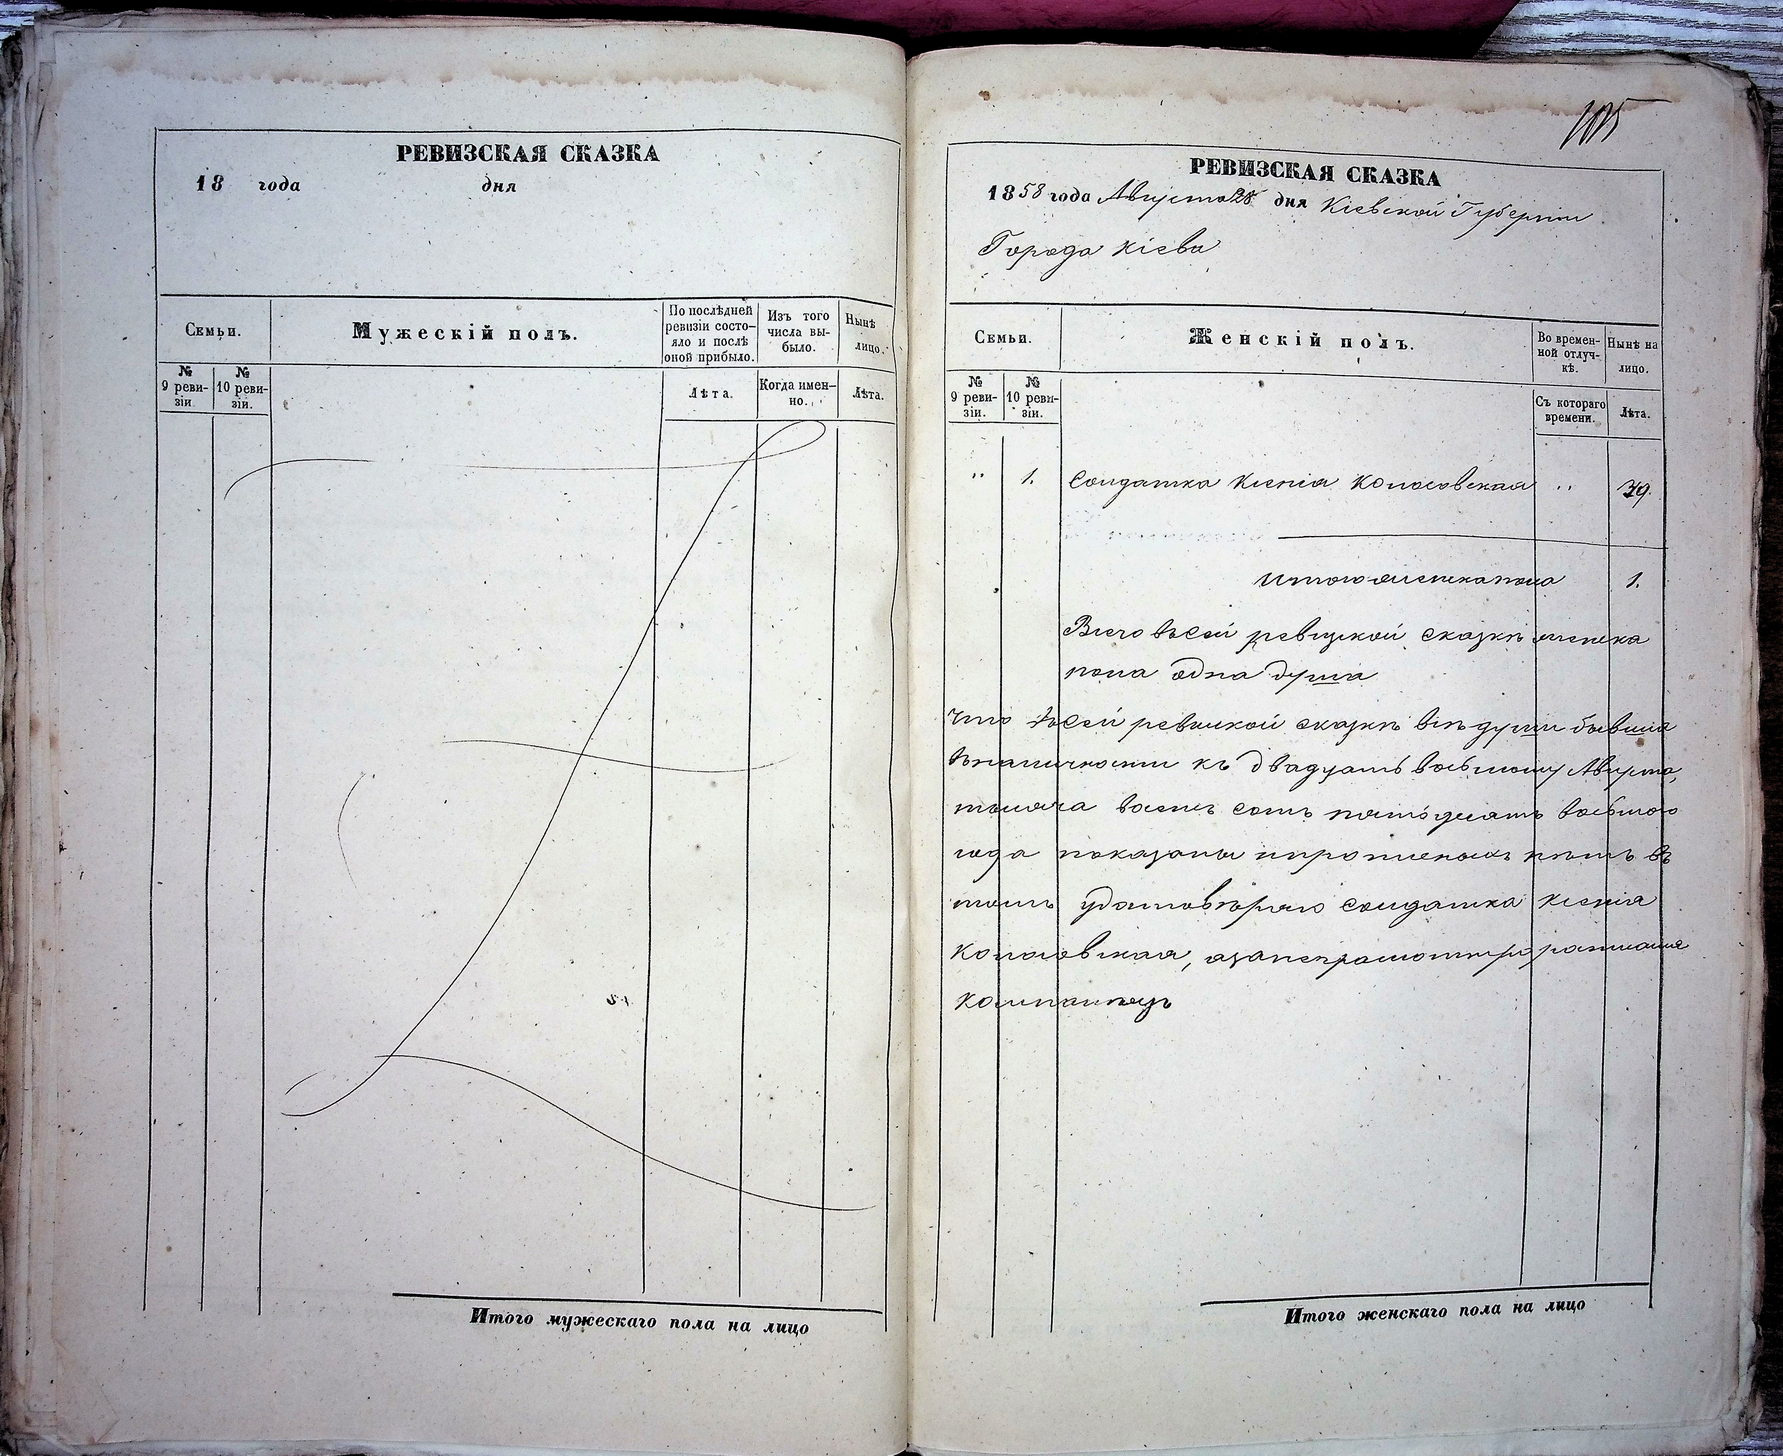 РЕВИЗСКАЯ СКАЗКА
18 года дня
Семьи.
Мужескій полъ.
По послѣдней ревизіи состо-яло и послѣ оной прибыло.
Изъ того числа вы-было.
Нынѣ лицо.
№ 9 реви-зіи.
№ 10 реви-зіи.
Лѣта.
Когда имен-но.
Лѣта.
Итого мужескаго пола на лицо
105
РЕВИЗСКАЯ СКАЗКА
1858 года Августа 28 дня Кіевской Губерніи
Города Кіева
Семьи.
Женскій полъ.
Во времен-ной отлуч-кѣ.
Нынѣ на лицо.
№ 9 реви-зіи.
№ 10 реви-зіи.
Съ котораго времени.
Лѣта.
" 1. Солдатка Ксенія Колосовская "
Итого женска пола 1.
Всего въ сей ревизкой сказкѣ женска
пола одна душа
Что въ сей ревизкой сказкѣ всѣ души бывшія
въ наличности къ двадцать восьмому Августа,
тысяча восемь сотъ пятьдесятъ восьмого
года показаны и прописныхъ нѣтъ въ
томъ удостовѣряю солдатка Ксенія
Колосовская, а за неграмотную росписался
Итого женскаго пола на лицо